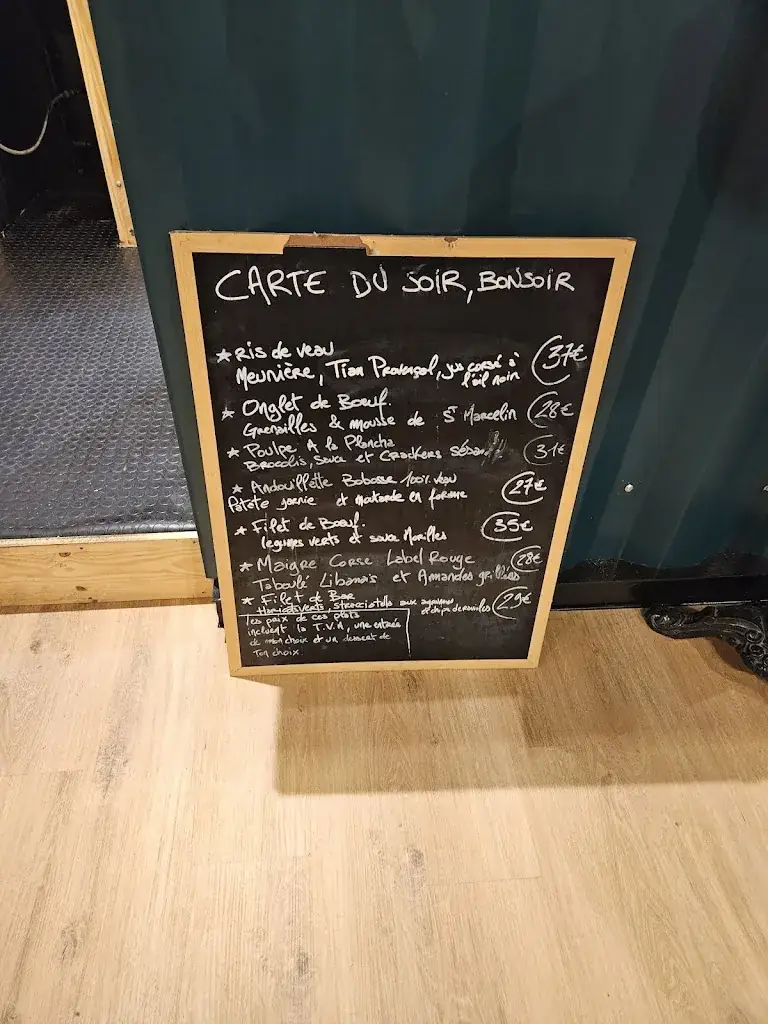 CARTE DU SOIR, BONSOIR
★ Ris de veau 37€
Meunière, Tian Provençal, jus corsé à
l'ail noir
★ Onglet de Bœuf. 28€
Grenailles & mousse de St Marcelin
★ Poulpe A la Plancha 31€
Brocolis, sauce et Crackers
★ Andouillette Bobosse 100% veau 27€
Patate garnie et moutarde en forme
★ Filet de Bœuf. 35€
légumes verts et sauce Morilles
★ Maigre Corse Label Rouge 28€
Taboulé Libanais et Amandes grillées
★ Filet de Bar 29€
Haricots verts, stracciatella aux agrumes et chips de
les prix de ces plats
incluent la T.V.A, une entrée
de mon choix et un dessert de
Ton choix.